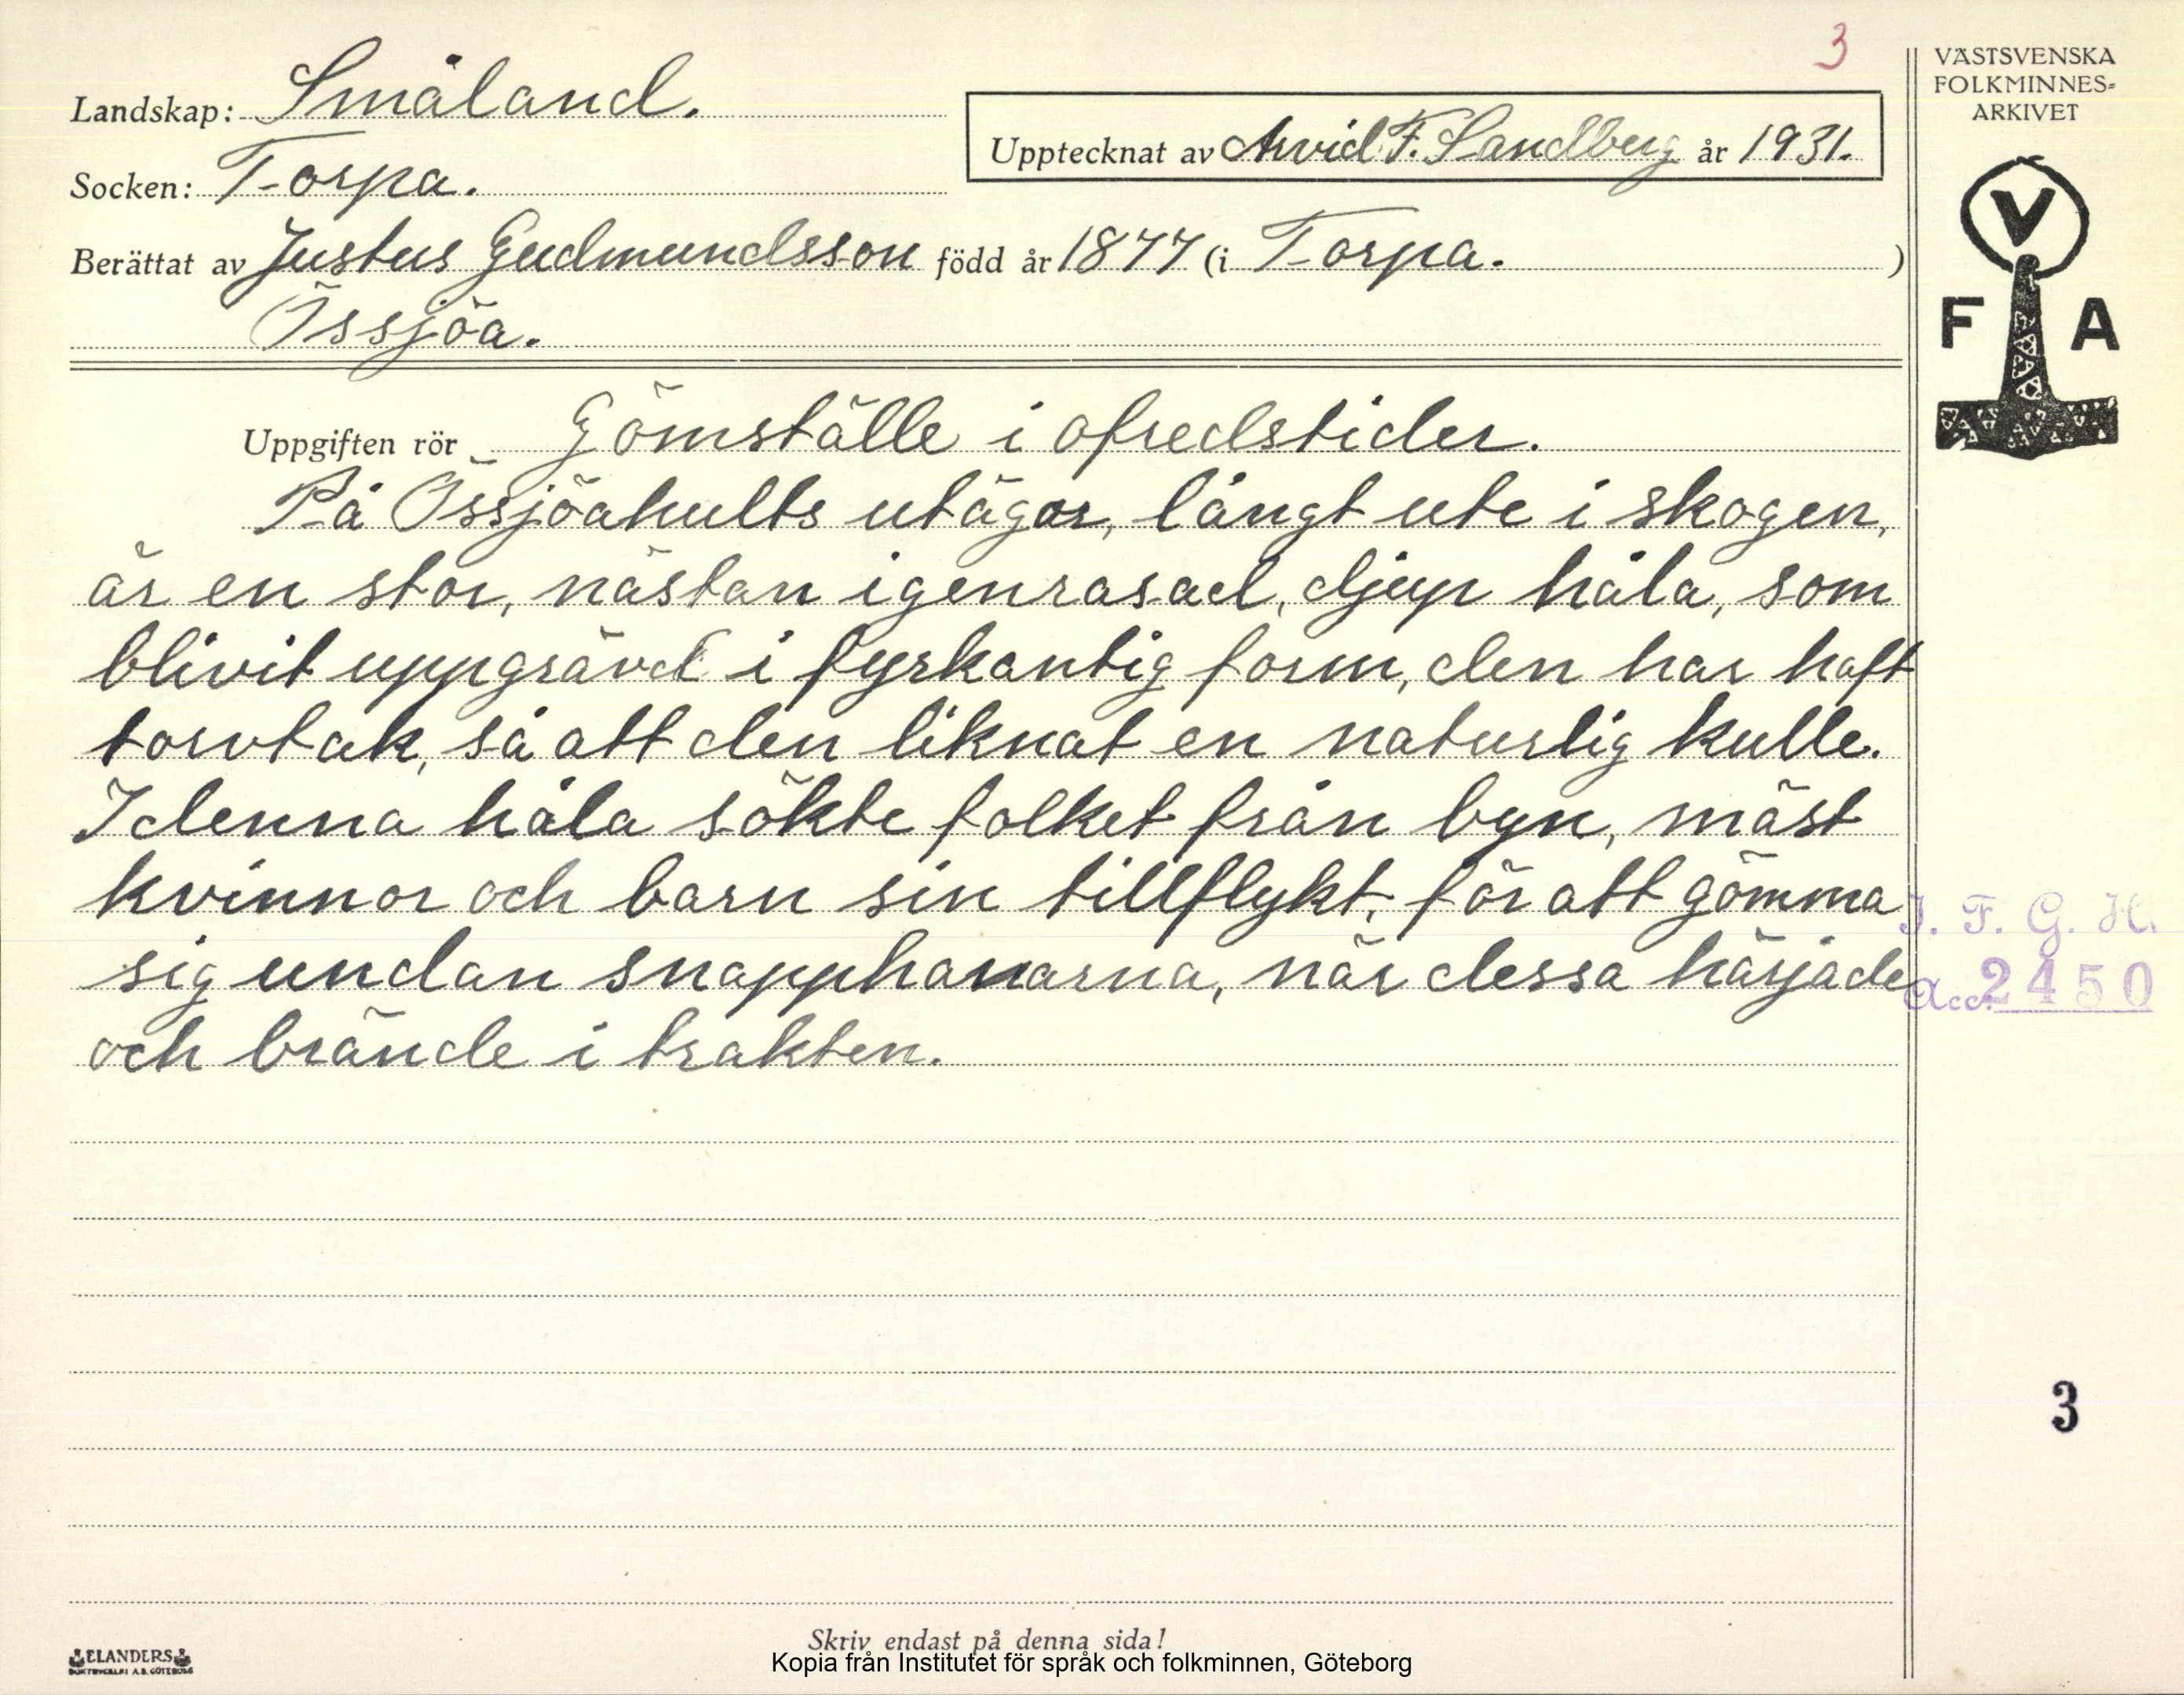 3
VÄSTSVENSKA
FOLKMINNES=
ARKIVET
Landskap: Småland.
Upptecknat av Arvid F. Sandberg år 1931.
Socken: Torpa.
Berättat av Justus Gudmundsson född år 1877 (i Torpa. )
Össjöa.
V
F A
Uppgiften rör Gömställe i ofredstider.
På Össjöahults utägor, långt ute i skogen,
är en stor, nästan igenrasad, djup håla, som
blivit uppgrävd i fyrkantig form, den har haft
torvtak, så att den liknat en naturlig kulle.
I denna håla sökte folket från byn, mäst
kvinnor och barn sin tillflykt, för att gömma
sig undan snapphanarna, när dessa härjade
och brände i trakten.
I. F. G. H.
Acc. 2450
3
Skriv endast på denna sida!
ELANDERS
BOKTRYCKERI A.B. GÖTEBORG
Kopia från Institutet för språk och folkminnen, Göteborg